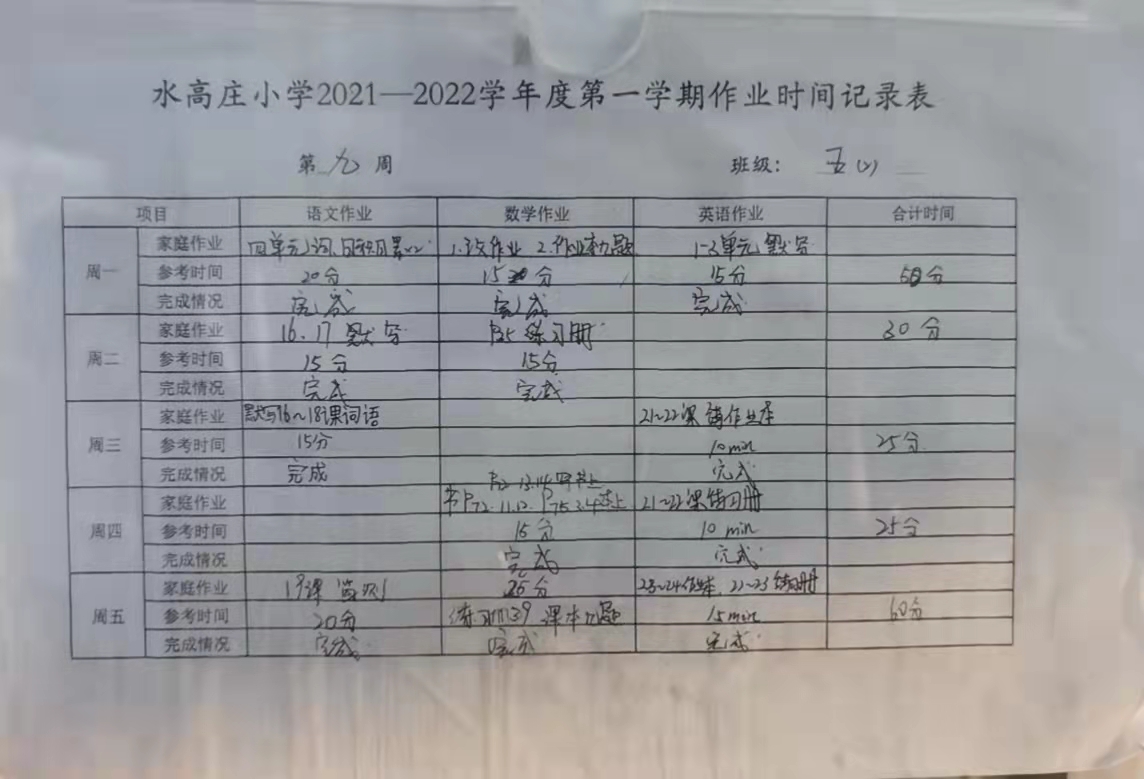 水高庄小学2021—2022学年度第一学期作业时间记录表
第 九 周 班级： 五(2)
项目 语文作业 数学作业 英语作业 合计时间
周一 家庭作业 四单元词、日积月累x2 1. 作业 2.作业本 题 1-3单元默写
参考时间 20分 15 分 15分 50分
完成情况 完成 完成 完成
周二 家庭作业 16.17 默写 P35 练习册 30分
参考时间 15分 15分
完成情况 完成 完成
周三 家庭作业 默写16~18课词语 21~22课 作业本
参考时间 15分 10min 25分
完成情况 完成 完成
P72 13.14 书上
周四 家庭作业 书P72.11.12. P75.3.4书上 21~22课练习册
参考时间 15分 10 min 25分
完成情况 完成 完成
周五 家庭作业 19课 25分 23~24作业本, 21~23练习册
参考时间 20分 练习册39 课本 题 15min 60分
完成情况 完成 完成 完成